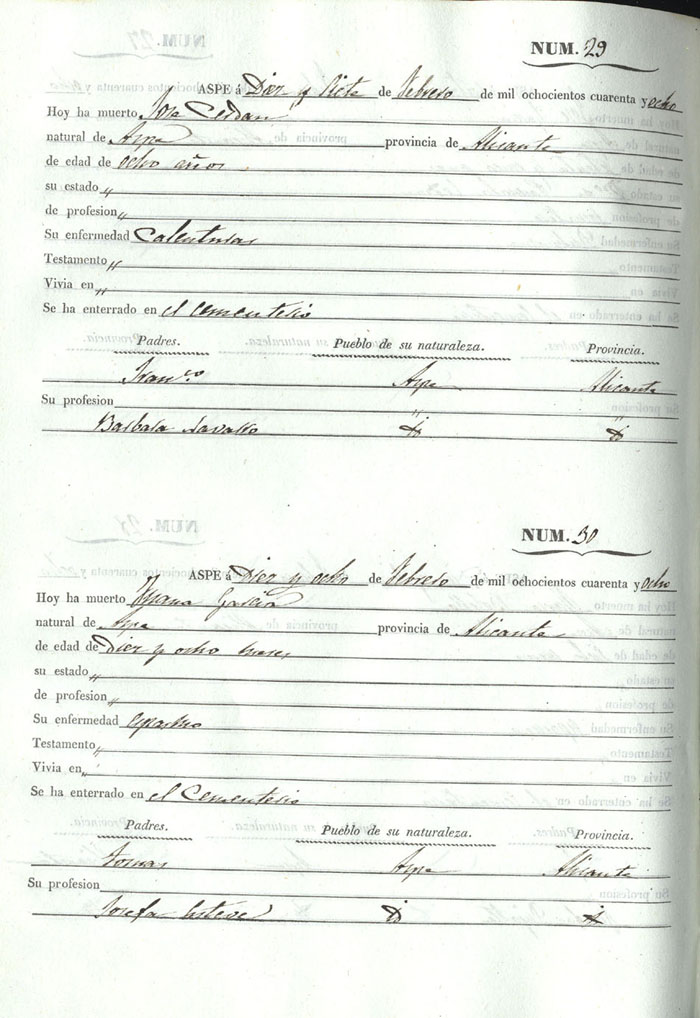 NUM. 29
ASPE á Diez y Siete de Febrero de mil ochocientos cuarenta y ocho
Hoy ha muerto Jose Cerdan
natural de Aspe provincia de Alicante
de edad de ocho años.
su estado „
de profesion „
Su enfermedad Calenturas
Testamento „
Vivia en „
Se ha enterrado en el Cementerio
Padres. Pueblo de su naturaleza. Provincia.
Franco Aspe Alicante
Su profesion „ „
Barbara Navarro Do Do
NUM. 30
ASPE á Diez y ocho de Febrero de mil ochocientos cuarenta y ocho
Hoy ha muerto Garcia
natural de Aspe provincia de Alicante
de edad de Diez y ocho meses
su estado „
de profesion „
Su enfermedad
Testamento „
Vivia en „
Se ha enterrado en el Cementerio
Padres. Pueblo de su naturaleza. Provincia.
Tomas Aspe Alicante
Su profesion
Josefa Esteve Do Do